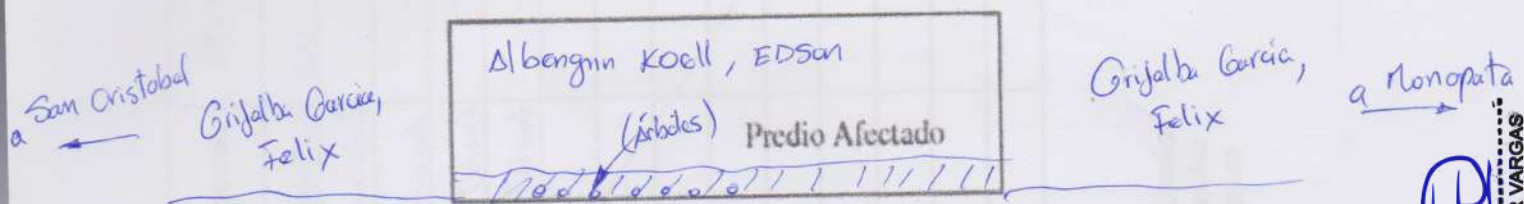 a San Cristobal
Grijalba Garcia,
Felix
Albengrin Koell, EDSON
(Árboles)
Predio Afectado
Grijalba Garcia,
Felix
a Monopata
VARGAS